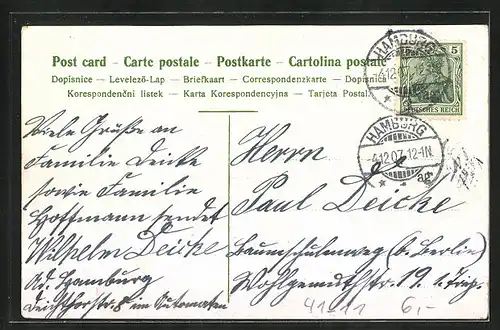 Post card – Carte postale – Postkarte – Cartolina postale
Dopisnice – Levelező-Lap – Briefkaart – Correspondenzkarte – Dopisnica
Korespondenční lístek – Karta Korespondencyjna – Tarjeta Postal
HAMBURG
4.12.07
5
DEUTSCHES REICH
HAMBURG
-4.12.07.12-1N.
* ag *
Viele Grüße an
Familie Deicke
sowie Familie
Hoffmann sendet
Wilhelm Deicke
Ad. Hamburg
Deichthorstr. 8 im Automaten
Herrn
Paul Deicke
Baumschulenweg (b. Berlin)
Wohlgemuthstr. 19. 1
41-11 6,-